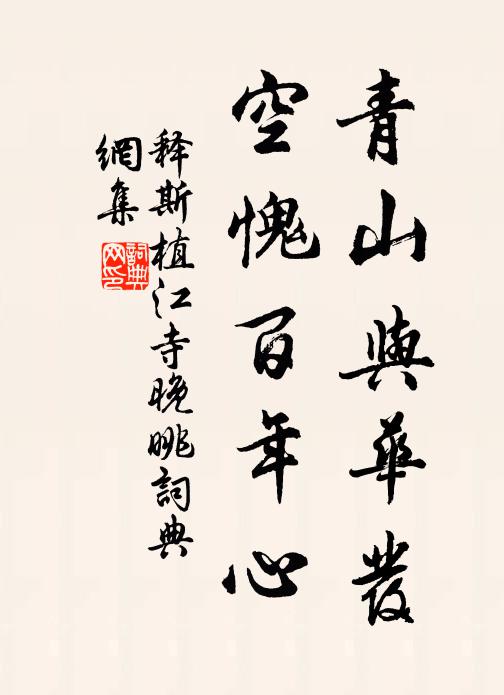 青山與華髮
空愧百年心
释斯植江寺晚眺詞典
網集
詞典
网印